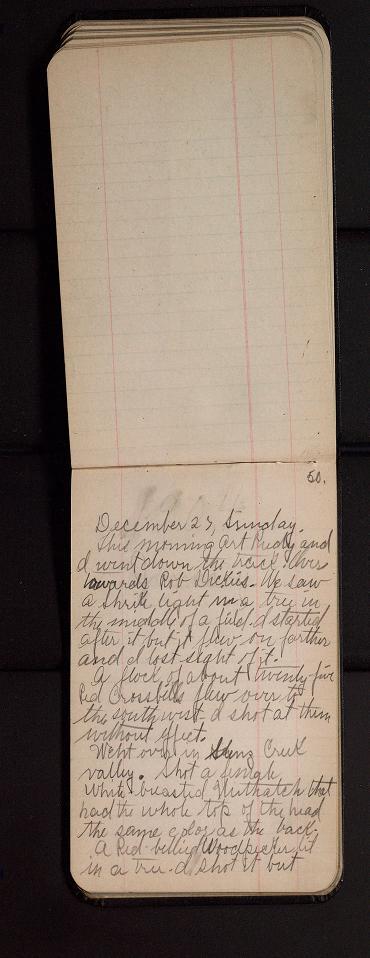 50.
December 23, Sunday.
This morning Art Rudy and
I went down the track over
towards Rob Dickies. We saw
a Shrike light in a tree in
the middle of a field. I started
after it but it flew on farther
and I lost sight of it.
A flock of about twenty-five
Red Crossbills flew over to
the southwest. I shot at them
without effect.
Went over in Creek
valley. Shot a female
White-breasted Nuthatch that
had the whole top of the head
the same color as the back.
A Red-bellied Woodpecker lit
in a tree. I shot it but